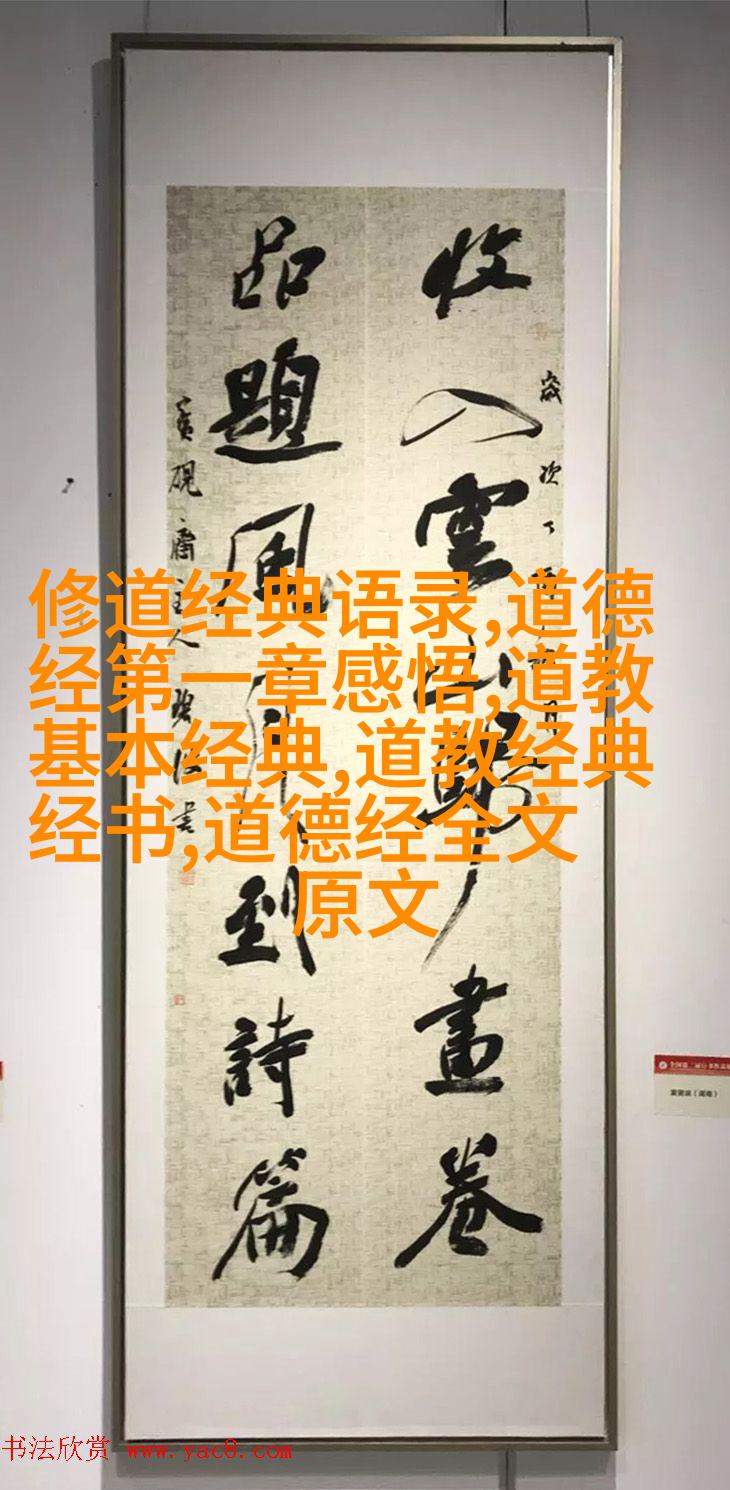 收入雲山歸畫卷
品題風月到詩篇
歲次丁酉
硯齋主人
書
修道经典语录,道德
经第一章感悟,道教
基本经典,道教经典
经书,道德经全文
原文
书法欣赏 www.yac8.com